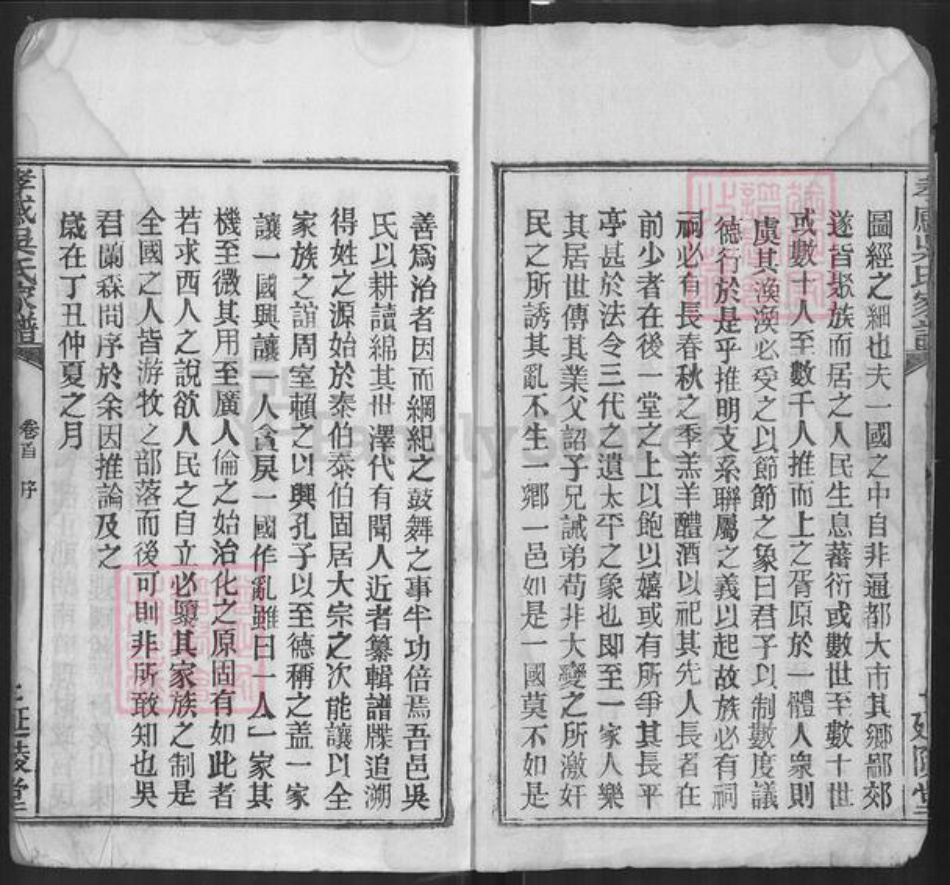 圖經之細也夫一國之中自非通都大市其鄉鄙郊
遂皆聚族而居之人民生息蕃衍或數世至數十世
或數十人至數千人推而上之胥原於一體人衆則
虞其渙渙必受之以節節之象曰君子以制數度議
德行於是乎推明支系聯屬之義以起故族必有祠
祠必有長春秋之季羔羊醴酒以祀其先人長者在
前少者在後一堂之上以飽以嬉或有所爭其長平
亭甚於法令三代之遺太平之象也即至一家人樂
其居世傳其業父詔子兄誡弟苟非大變之所激奸
民之所誘其亂不生一鄉一邑如是一國莫不如是
善爲治者因而綱紀之鼓舞之事半功倍焉吾邑吳
氏以耕讀綿其世澤代有聞人近者纂輯譜牒追溯
得姓之源始於泰伯泰伯固居大宗之次能讓以全
家族之誼周室賴之以興孔子以至德稱之蓋一家
讓一國興讓一人貪戾一國作亂雖曰一人一家其
機至微其用至廣人倫之始治化之原固有如此者
若求西人之說欲人民之自立必隳其家族之制是
全國之人皆游牧之部落而後可則非所敢知也吳
君蘭森問序於余因推論及之
歲在丁丑仲夏之月
孝感吳氏家譜
卷首 序
延陵堂